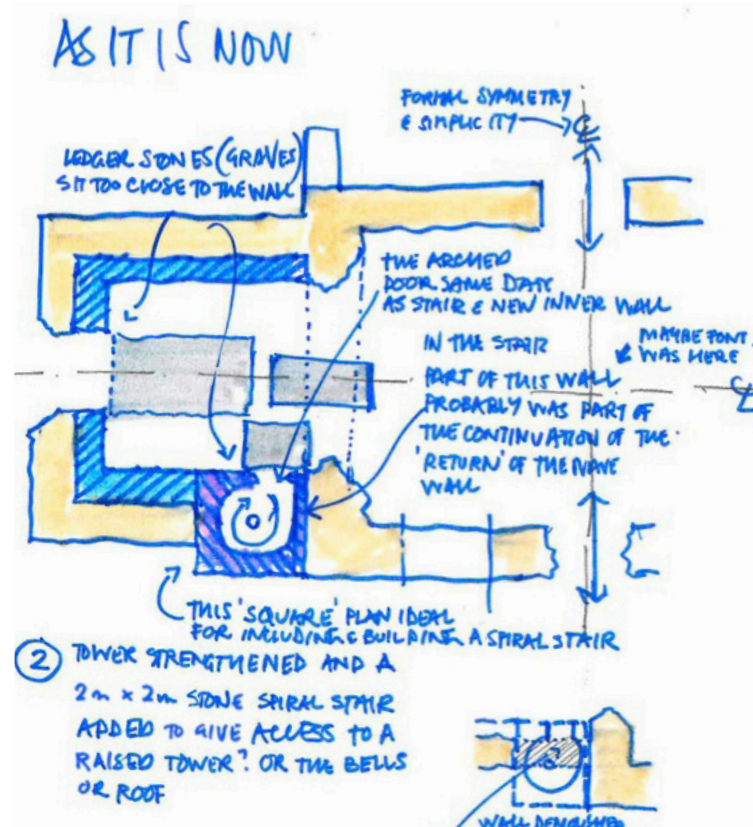 AS IT IS NOW
FORMAL SYMMETRY
& SIMPLICITY
LEDGER STONES (GRAVES)
SIT TOO CLOSE TO THE WALL
THE ARCHED
DOOR SAME DATE
AS STAIR & NEW INNER WALL
IN THE STAIR
PART OF THIS WALL
PROBABLY WAS PART OF
THE CONTINUATION OF THE
'RETURN' OF THE NAVE
WALL
MAYBE FONT
WAS HERE
THIS 'SQUARE' PLAN IDEAL
FOR INCLUDING & BUILDING A SPIRAL STAIR
2 TOWER STRENGTHENED AND A
2m x 2m STONE SPIRAL STAIR
ADDED TO GIVE ACCESS TO A
RAISED TOWER? OR THE BELLS
OR ROOF
WALL DEMOLISHED